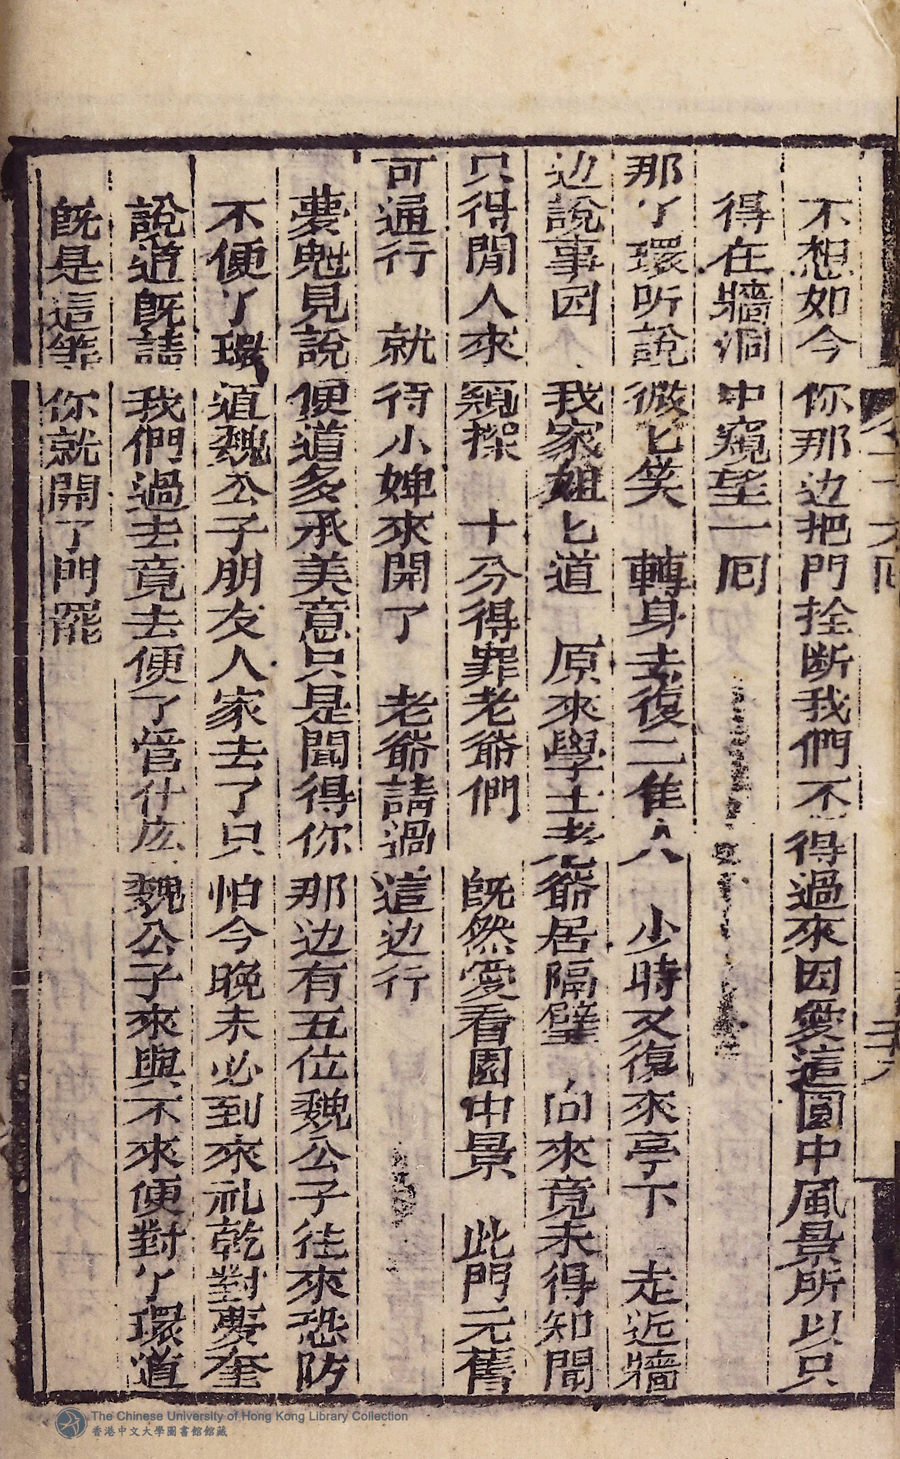 不想如今你那边把門拴断我們不得過來因愛這園中風景所以只
得在牆洞中窺望一囘
那了環听說微匕笑 轉身去復二隹人 少時又復來亭下 走近牆
边說事因 我家姐匕道 原來學士老爺居隔壁 向來竟未得知聞
只得閒人來窺探 十分得罪老爺們 既然愛看園中景 此門元舊
可通行 就待小婢來開了 老爺請過這边行
夢魁見說便道多承美意只是聞得你那边有五位魏公子往來恐防
不便了環道魏公子朋友人家去了只怕今晚未必到來礼乾對夢奎
說道既話我們過去竟去便了管什広魏公子來與不來便對了環道
既是這等你就開了門罷
The Chinese University of Hong Kong Library Collection
香港中文大學圖書館館藏